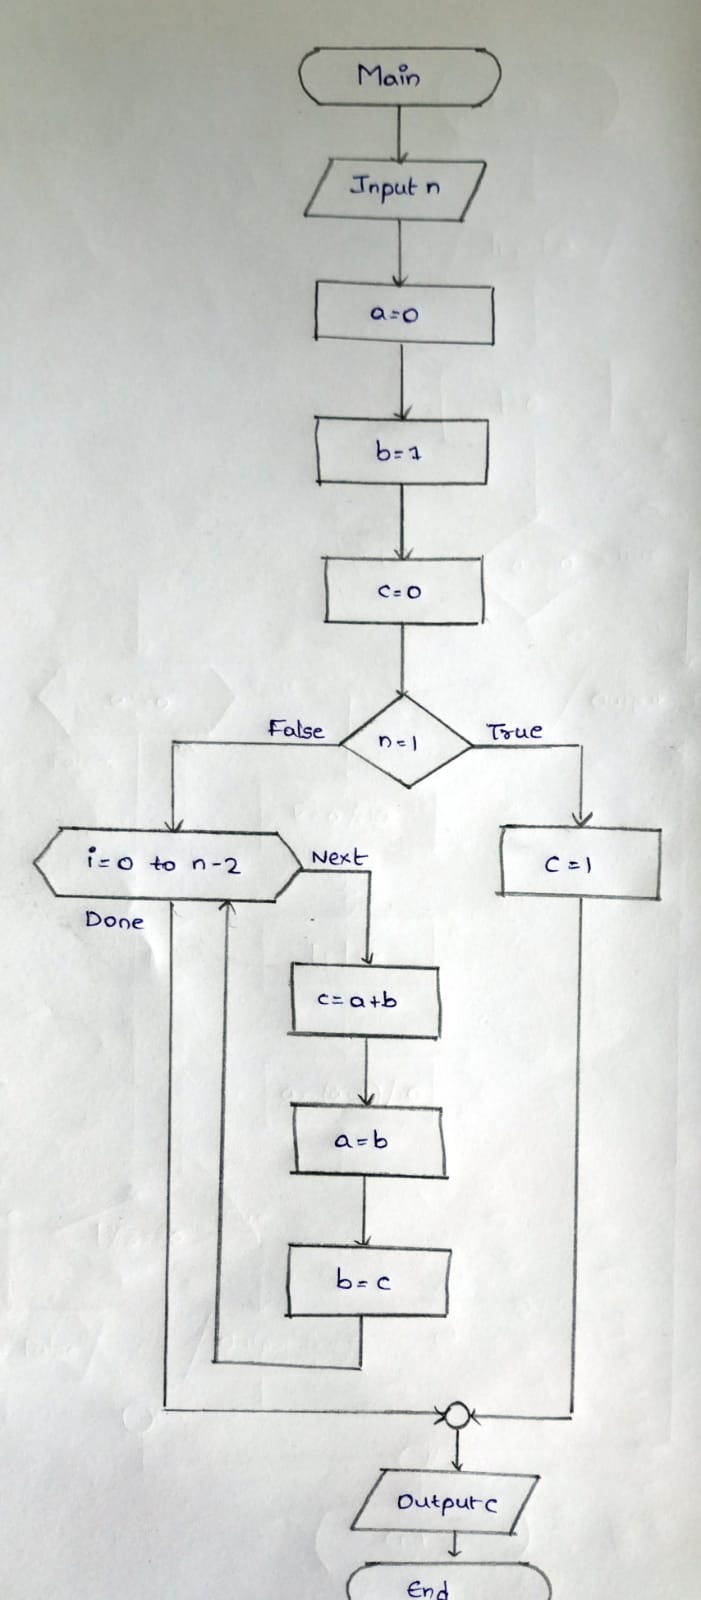 Main
Input n
a=0
b=1
c=0
False
n=1
True
i=0 to n-2
Next
c=1
Done
c=a+b
a=b
b=c
Output c
End